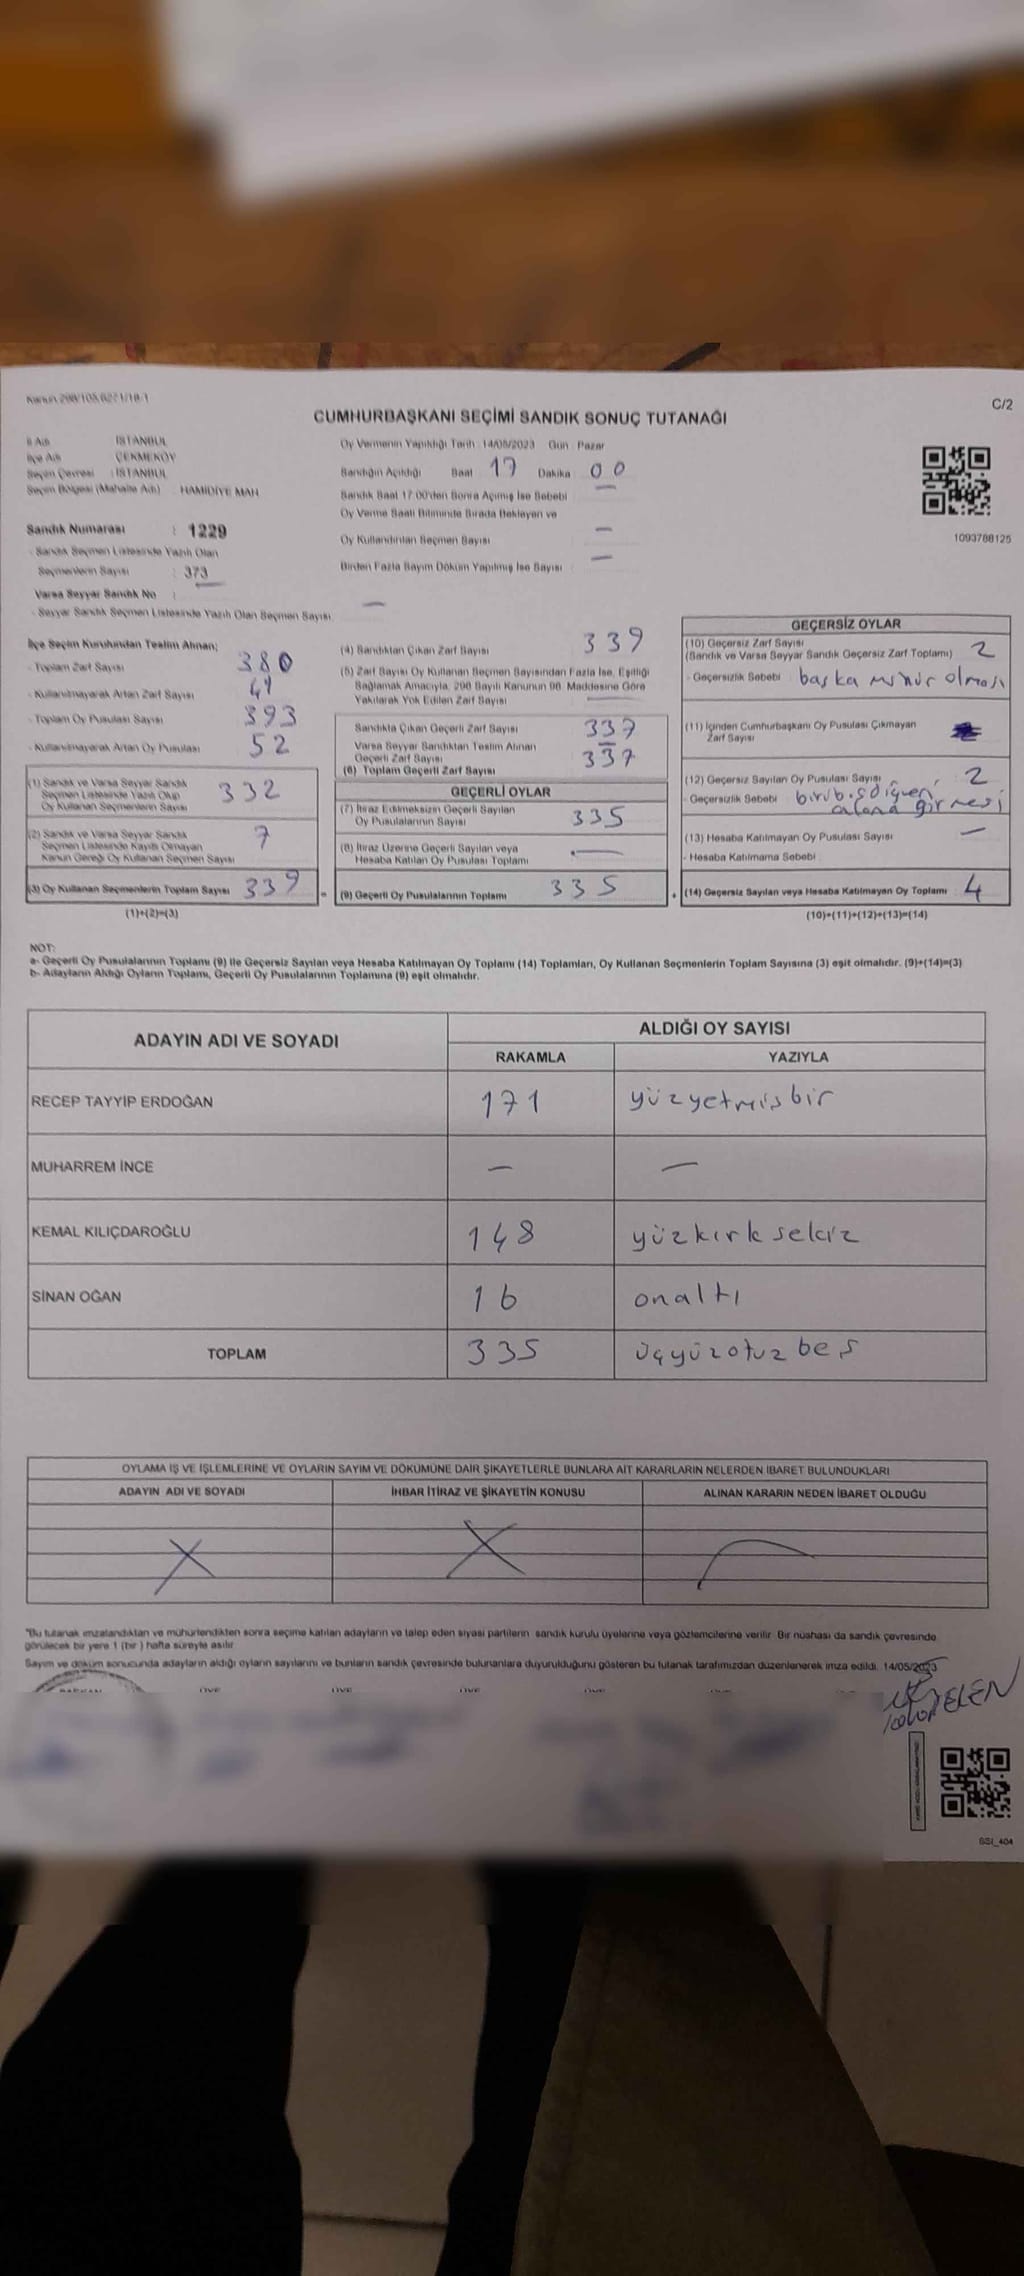 Kanun 298/105,6271/18-1
C/2
CUMHURBAŞKANI SEÇİMİ SANDIK SONUÇ TUTANAĞI
İl Adı : İSTANBUL
İlçe Adı : ÇEKMEKÖY
Seçim Çevresi : İSTANBUL
Seçim Bölgesi (Mahalle Adı) : HAMİDİYE MAH
Oy Vermenin Yapıldığı Tarih : 14/05/2023 Gün : Pazar
Sandığın Açıldığı Saat 17 Dakika 00
Sandık Saat 17:00'den Sonra Açılmış İse Sebebi —
Oy Verme Saati Bitiminde Sırada Bekleyen ve
Oy Kullandırılan Seçmen Sayısı —
Birden Fazla Sayım Döküm Yapılmış İse Sayısı : —
1093788125
Sandık Numarası : 1229
- Sandık Seçmen Listesinde Yazılı Olan
Seçmenlerin Sayısı : 373
Varsa Seyyar Sandık No :
- Seyyar Sandık Seçmen Listesinde Yazılı Olan Seçmen Sayısı —
İlçe Seçim Kurulundan Teslim Alınan;
- Toplam Zarf Sayısı 380
- Kullanılmayarak Artan Zarf Sayısı 41
- Toplam Oy Pusulası Sayısı 393
- Kullanılmayarak Artan Oy Pusulası 52
(1) Sandık ve Varsa Seyyar Sandık
Seçmen Listesinde Yazılı Olup
Oy Kullanan Seçmenlerin Sayısı 332
(2) Sandık ve Varsa Seyyar Sandık
Seçmen Listesinde Kayıtlı Olmayan
Kanun Gereği Oy Kullanan Seçmen Sayısı 7
(3) Oy Kullanan Seçmenlerin Toplam Sayısı 339 =
(1)+(2)=(3)
(4) Sandıktan Çıkan Zarf Sayısı 339
(5) Zarf Sayısı Oy Kullanan Seçmen Sayısından Fazla İse, Eşitliği
Sağlamak Amacıyla, 298 Sayılı Kanunun 98. Maddesine Göre
Yakılarak Yok Edilen Zarf Sayısı
Sandıkta Çıkan Geçerli Zarf Sayısı 337
Varsa Seyyar Sandıktan Teslim Alınan
Geçerli Zarf Sayısı —
(6) Toplam Geçerli Zarf Sayısı 337
GEÇERLİ OYLAR
(7) İtiraz Edilmeksizin Geçerli Sayılan
Oy Pusulalarının Sayısı 335
(8) İtiraz Üzerine Geçerli Sayılan veya
Hesaba Katılan Oy Pusulası Toplamı —
(9) Geçerli Oy Pusulalarının Toplamı 335 +
GEÇERSİZ OYLAR
(10) Geçersiz Zarf Sayısı
(Sandık ve Varsa Seyyar Sandık Geçersiz Zarf Toplamı) 2
- Geçersizlik Sebebi : başka mühür olması
(11) İçinden Cumhurbaşkanı Oy Pusulası Çıkmayan
Zarf Sayısı
(12) Geçersiz Sayılan Oy Pusulası Sayısı 2
- Geçersizlik Sebebi
alana girmesi
(13) Hesaba Katılmayan Oy Pusulası Sayısı —
- Hesaba Katılmama Sebebi
(14) Geçersiz Sayılan veya Hesaba Katılmayan Oy Toplamı 4
(10)+(11)+(12)+(13)=(14)
NOT:
a- Geçerli Oy Pusulalarının Toplamı (9) ile Geçersiz Sayılan veya Hesaba Katılmayan Oy Toplamı (14) Toplamları, Oy Kullanan Seçmenlerin Toplam Sayısına (3) eşit olmalıdır. (9)+(14)=(3)
b- Adayların Aldığı Oyların Toplamı, Geçerli Oy Pusulalarının Toplamına (9) eşit olmalıdır.
ADAYIN ADI VE SOYADI ALDIĞI OY SAYISI
RAKAMLA YAZIYLA
RECEP TAYYİP ERDOĞAN 171 yüzyetmişbir
MUHARREM İNCE — —
KEMAL KILIÇDAROĞLU 148 yüzkırksekiz
SİNAN OĞAN 16 onaltı
TOPLAM 335 üçyüzotuzbeş
OYLAMA İŞ VE İŞLEMLERİNE VE OYLARIN SAYIM VE DÖKÜMÜNE DAİR ŞİKAYETLERLE BUNLARA AİT KARARLARIN NELERDEN İBARET BULUNDUKLARI
ADAYIN ADI VE SOYADI İHBAR İTİRAZ VE ŞİKAYETİN KONUSU ALINAN KARARIN NEDEN İBARET OLDUĞU
*Bu tutanak imzalandıktan ve mühürlendikten sonra seçime katılan adayların ve talep eden siyasi partilerin sandık kurulu üyelerine veya gözlemcilerine verilir. Bir nüshası da sandık çevresinde
görülecek bir yere 1 (bir) hafta süreyle asılır.
Sayım ve döküm sonucunda adayların aldığı oyların sayılarını ve bunların sandık çevresinde bulunanlara duyurulduğunu gösteren bu tutanak tarafımızdan düzenlenerek imza edildi. 14/05/2023
BAŞKAN ÜYE ÜYE ÜYE ÜYE ÜYE
SSİ_404